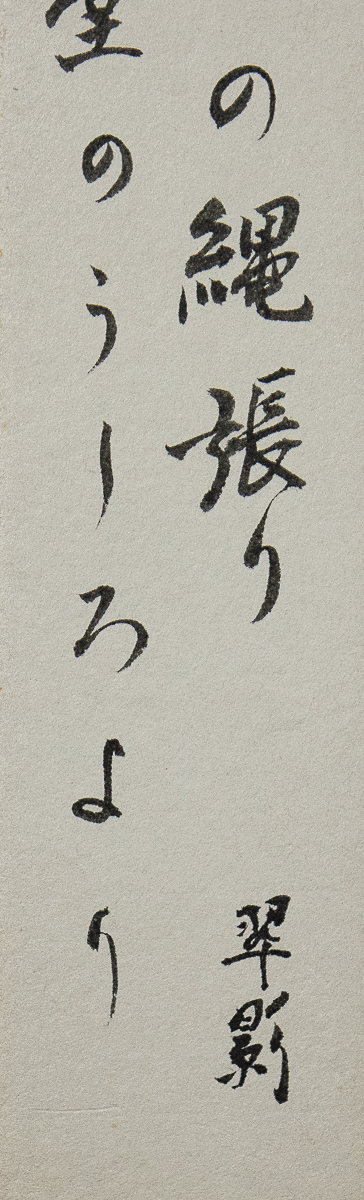 の縄張り
翠影
のうしろより